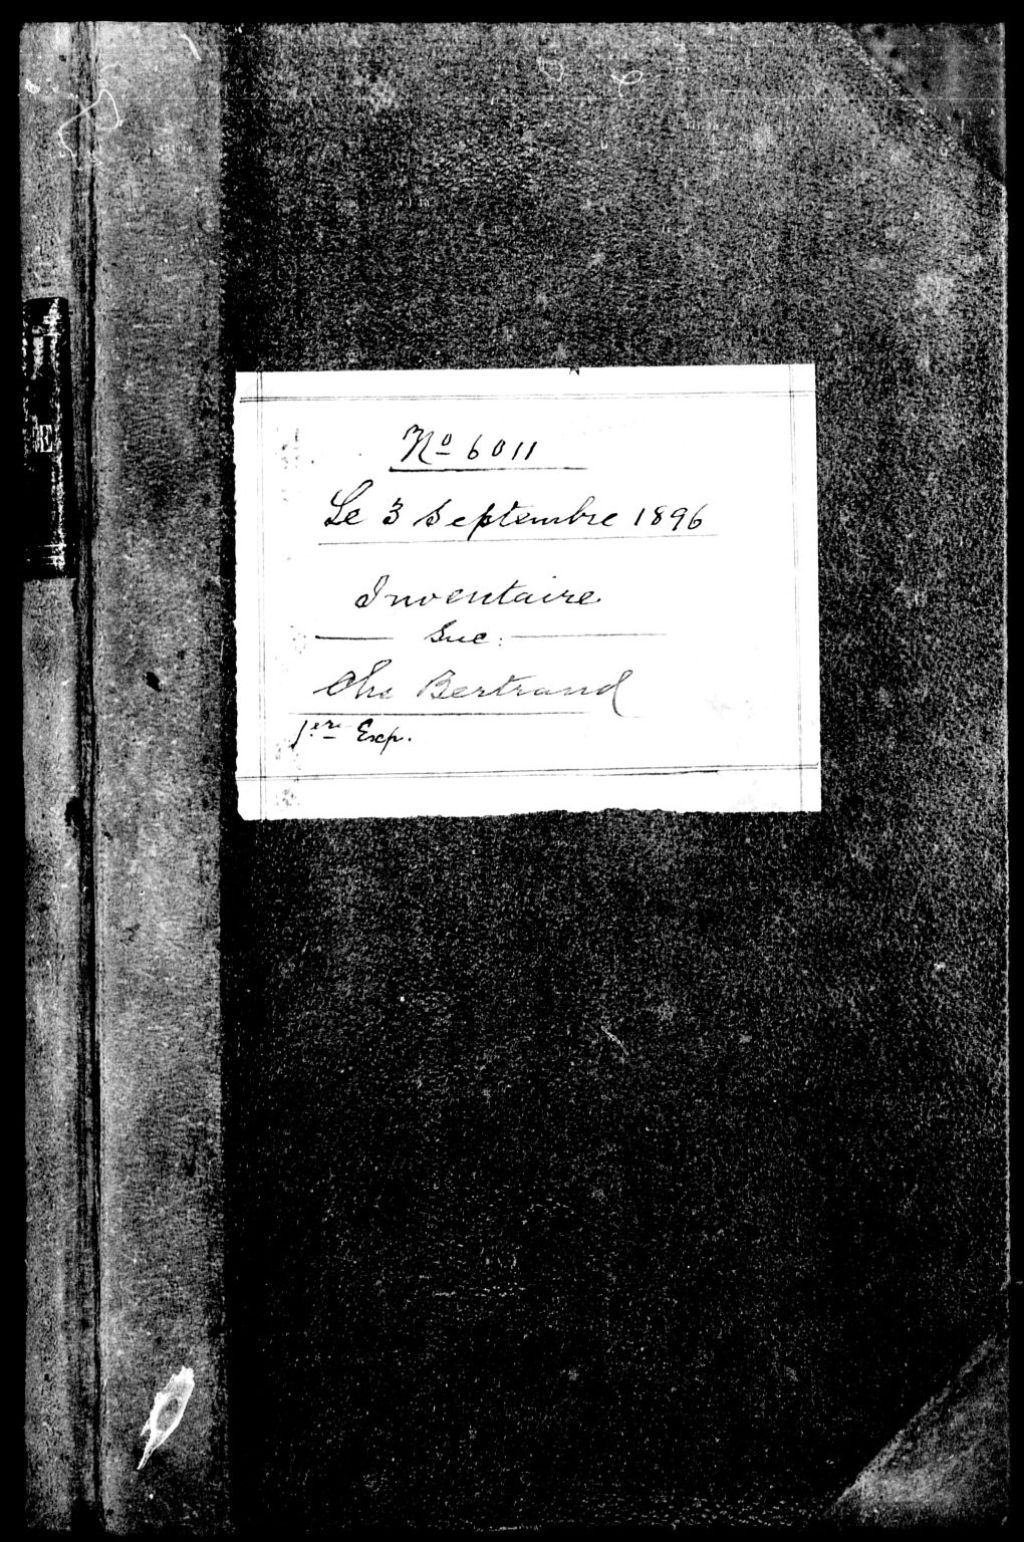 No 6011
Le 3 Septembre 1896
Inventaire
Suc:
Chs Bertrand
1ère Exp.